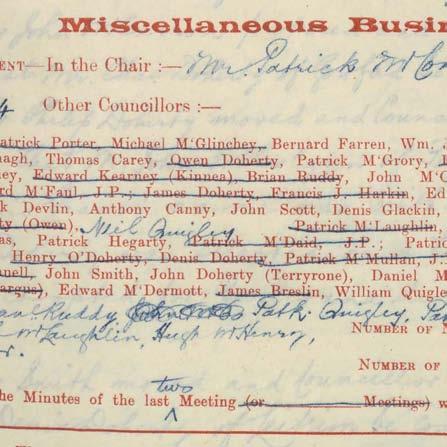 Miscellaneous Busin
ENT—In the Chair :— Mr. Patrick McCon
4 Other Councillors :—
atrick Porter, Michael M‘Glinchey, Bernard Farren, Wm. J
nagh, Thomas Carey, Owen Doherty, Patrick M‘Grory, 
ey, Edward Kearney (Kinnea), Brian Ruddy, John M‘G
rd M‘Faul, J.P.; James Doherty, Francis J. Harkin, Ed
k Devlin, Anthony Canny, John Scott, Denis Glackin,
ty (Owen) Neil Quigley Patrick M‘Laughlin,
as, Patrick Hegarty, Patrick M‘Daid, J.P.; Patri
Henry O‘Doherty, Denis Doherty, Patrick M‘Mullan, J.
nnell, John Smith, John Doherty (Terryrone), Daniel M
argus), Edward M‘Dermott, James Breslin, William Quigle
Ruddy, Patk. Quigley, Pa
McLaughlin, Hugh McHenry, NUMBER OF
r.
NUMBER OF
two
he Minutes of the last Meeting (or Meetings) w